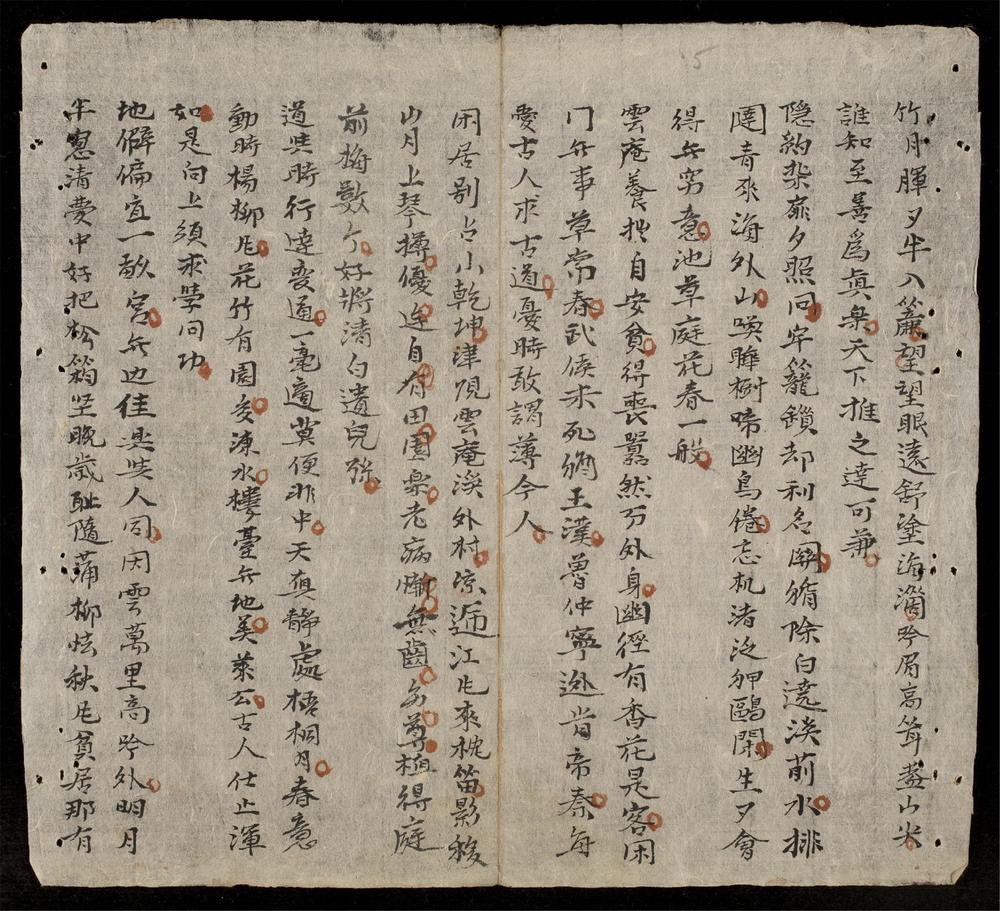 竹月暉夕半入簾望望眼遠舒塗海濶吟眉高聳盡山尖
誰知至善爲眞樂天下推之達可兼
隱約柴扉夕照间牢籠鎖却利名關脩除白遶淡前水排
闥青來海外山喚雎樹啼幽鳥倦忘机渚泛狎鷗閑生夕會
得无穷意池草庭花春一般
雲庵養拙自安貧得喪囂然方外身幽徑有香花是客困
门无事草常春武侯未死猶王漢魯仲寧逊肯帝秦每
愛古人求古道憂時敢謂薄今人
闲居别占小乾坤津硯雲庵溪外村凉逓江风來枕笛影移
山月上琴樽優迕自有田園樂老病慚無齒爵尊植得庭
前梅數个好將清白遺兒孫
道些時行達变通一毫適莫便非中天眞靜處梧桐月春意
動時楊柳风花竹有園爰涑水樓臺无地美萊公古人仕止渾
如是向上須求學问功
地僻偏宜一畝宮无边佳興些人同闲雲萬里高吟外明月
半窓清夢中好把松筠坚晚歲耻隨蒲柳怯秋风貧居那有